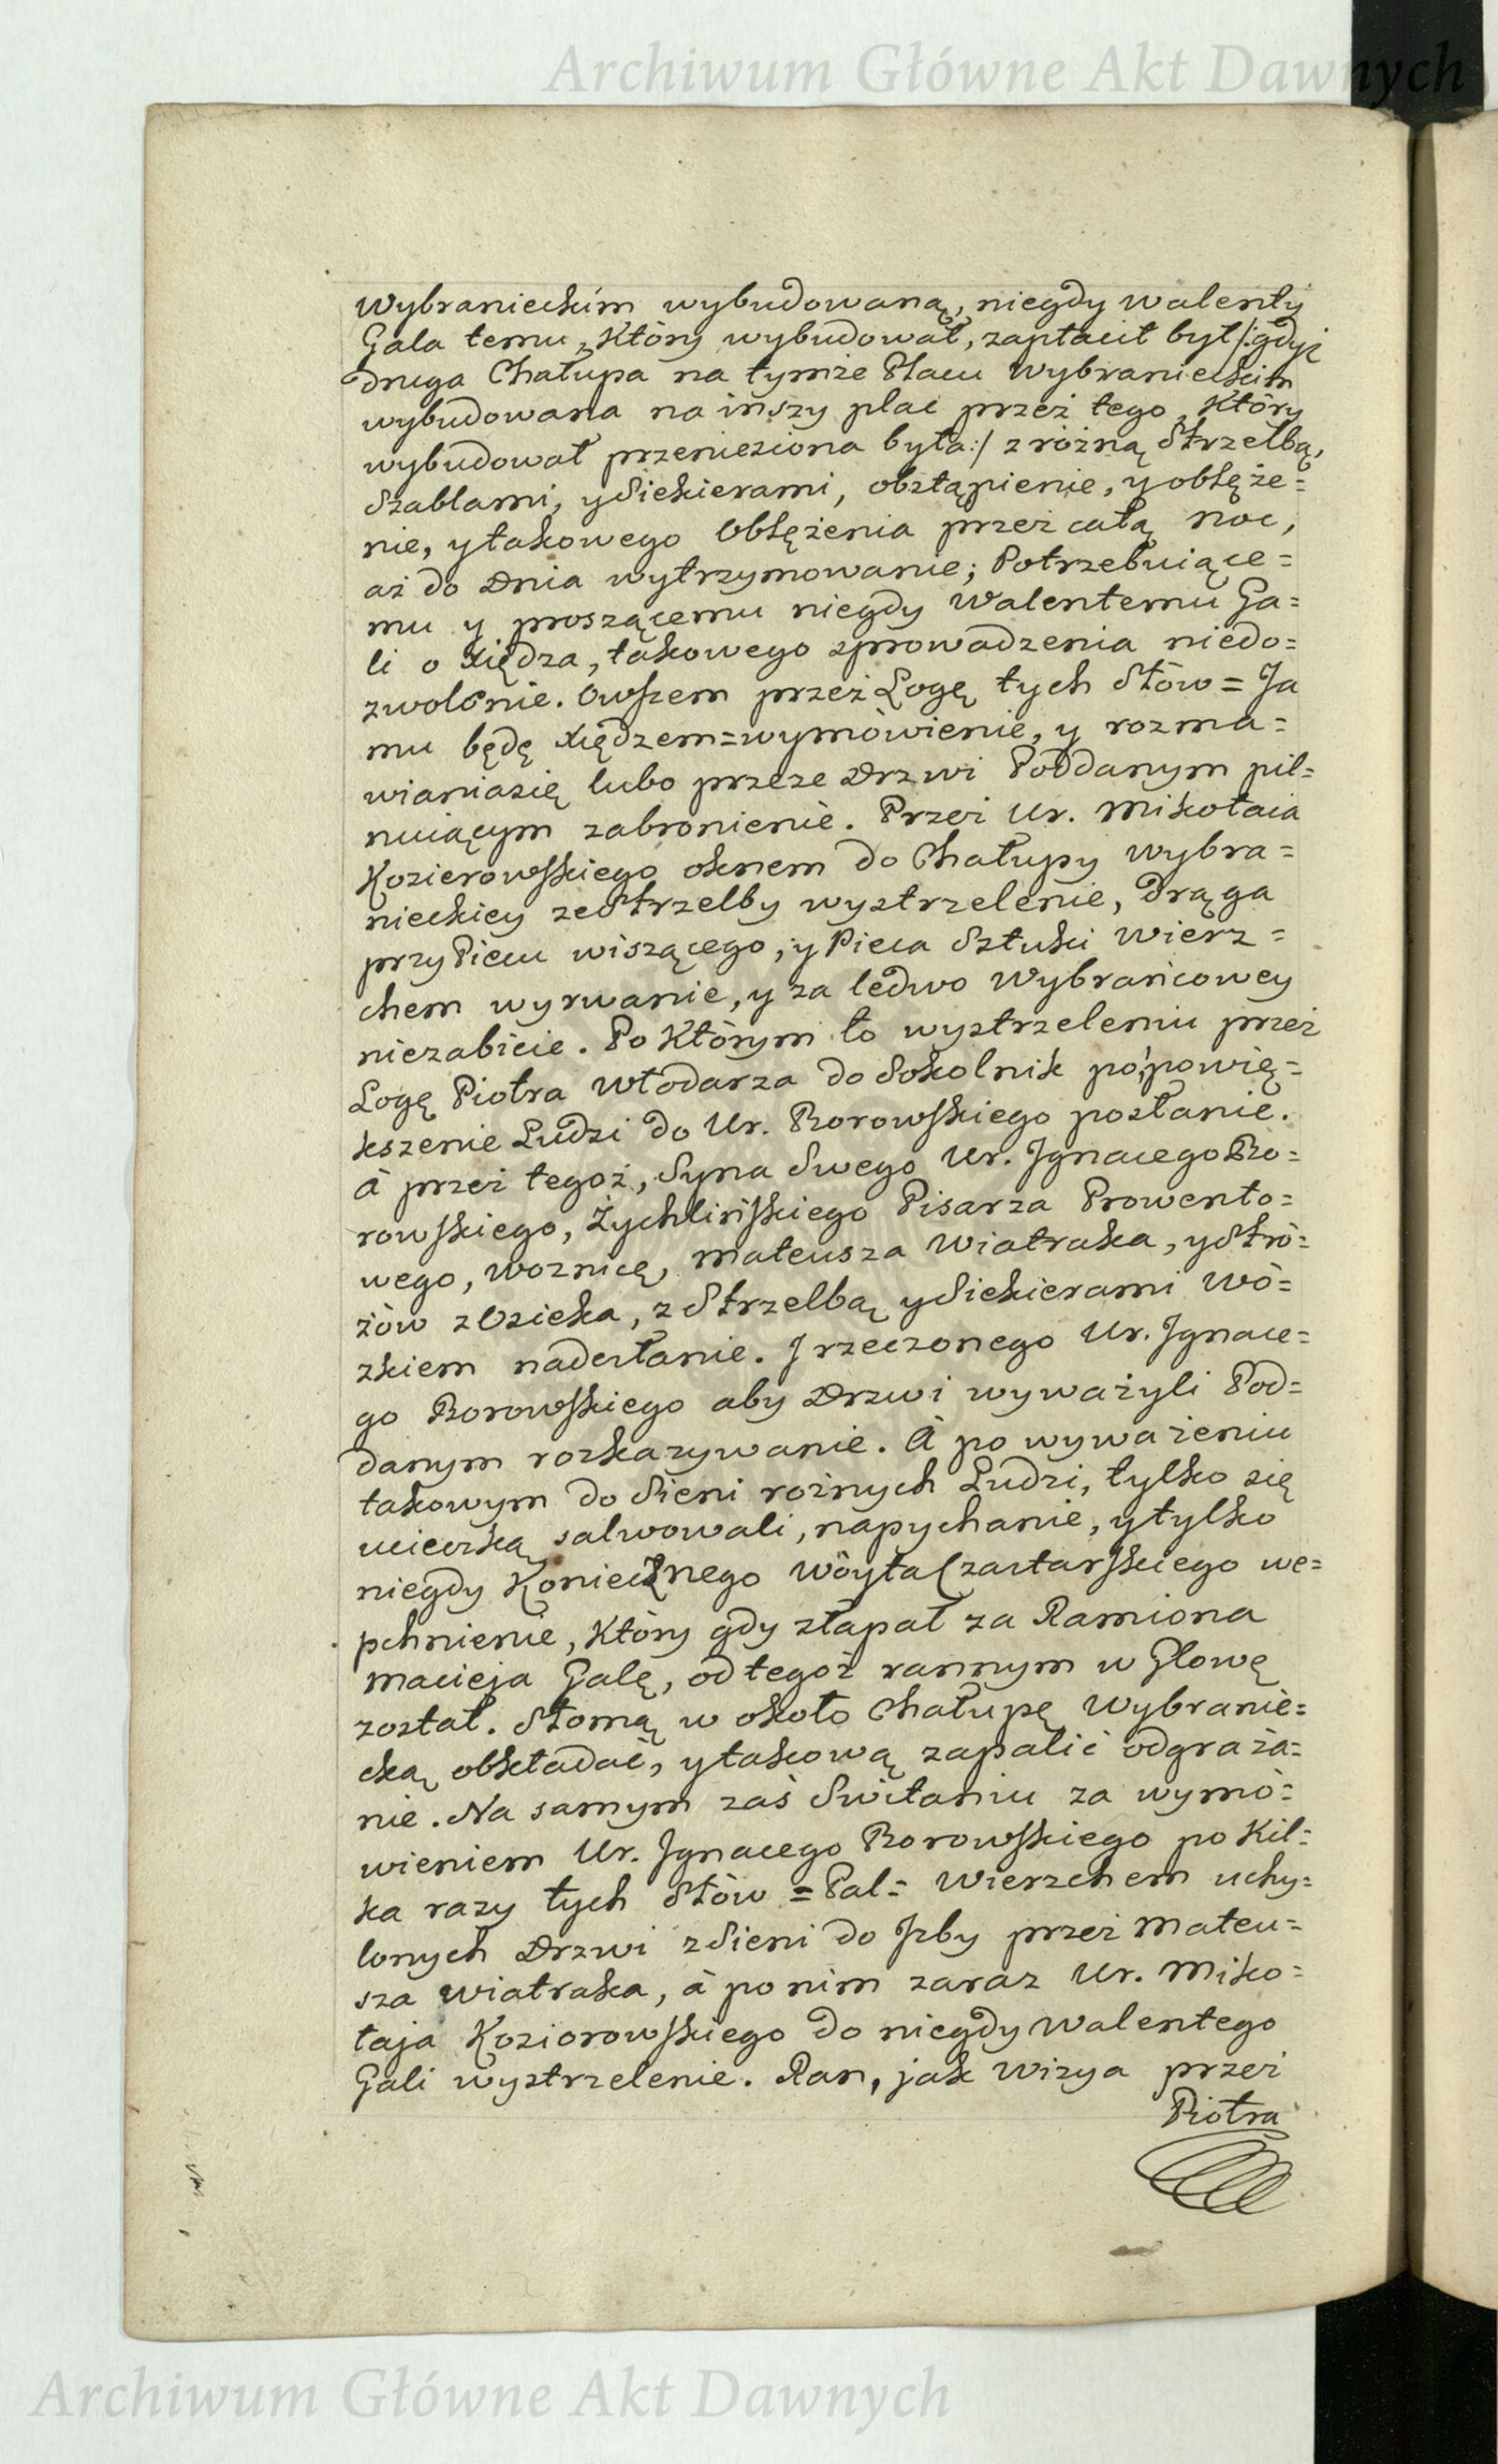 Archiwum Główne Akt Dawnych
Wybranieckim wybudowaną, niegdy Walenty
Gala temu, Który wybudował, zapłacił był /:gdyż
druga Chałupa na tymże Placu Wybranieckim
wybudowana na inszy plac przez tego, Który
wybudował przenieziona była:/ z różną Strzelbą,
Szablami, y Siekierami, obstąpienie, y oblęże=
nie, y takowego Oblężenia przez całą noc,
aż do Dnia wytrzymowanie; Potrzebuiące=
mu y proszącemu niegdy Walentemu Ga=
li o Xiędza, takowego sprowadzenia niedo=
zwolenie. Owszem przez Logę tych Słów = Ja
mu będę Xiędzem = wymówienie, y rozma=
wiania się lubo przeze Drzwi Poddanym pil=
nuiącym zabronienie. Przez Ur. Mikołaia
Kozierowskiego oknem do Chałupy Wybra=
nieckiey ze Strzelby wystrzelenie, Drąga
przy Piecu wiszącego, y Pieca Sztuki Wierz=
chem wyrwanie, y za ledwo Wybrańcowey
niezabicie. Po Którym to wystrzeleniu przez
Logę Piotra Włodarza do Sokolnik po powię=
kszenie Ludzi do Ur. Borowskiego posłanie.
à przez tegoż, Syna Swego Ur. Ignacego Bo=
rowskiego, Żychlińskiego Pisarza Prowento=
wego, Woznicę, Mateusza Wiatraka, y Stró=
żów z Osieka, z Strzelbą y Siekierami Wó=
zkiem nadesłanie. J rzeczonego Ur. Ignace=
go Borowskiego aby Drzwi wyważyli Pod=
danym rozkazywanie. à po wyważeniu
takowym do Sieni rożnych Ludzi, tylko się
ucieczką salwowali, napychanie, y tylko
niegdy Koniecznego Wóyta Czartarskiego we=
pchnienie, Który gdy złapał za Ramiona
Macieja Galę, od tegoż rannym w Głowę
został. Słomą w około Chałupę Wybranie=
cką obkładać, y takową zapalić odgraża=
nie. Na samym zaś Switaniu za wymó=
wieniem Ur. Ignacego Borowskiego po Kil=
ka razy tych Słów = Pal = Wierzchem uchy=
lonych Drzwi z Sieni do Jzby przez Mateu=
sza Wiatraka, à po nim zaraz Ur. Miko=
łaja Koziorowskiego do niegdy Walentego
Gali wystrzelenie. Ran, jak Wizya przez
Piotra
Archiwum Główne Akt Dawnych